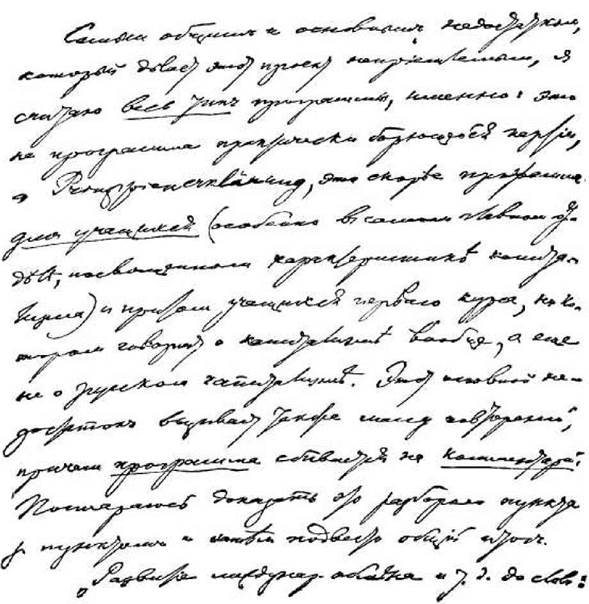 Самым общим и основным недостатком,
который дѣлает этот проект непріемлемым, я
считаю весь типъ программы, именно: это
не программа практически борющейся партіи,
а Prinzipienerklärung, это скорѣе программа
для учащихся (особенно в самом главном от-
дѣлѣ, посвященном характеристикѣ капита-
лизма) и притом учащихся первого курса, на ко-
тором говорят о капитализмѣ вообще, а еще
не о русском капитализмѣ. Этот основной не-
достатокъ вызывает также массу повтореній,
причем программа сбивается на комментарій.
Постараюсь доказать это разбором пункта
за пунктом и затѣм подвести общій итог.
"Развитіе междунар. обмѣна" и т. д. до слов: